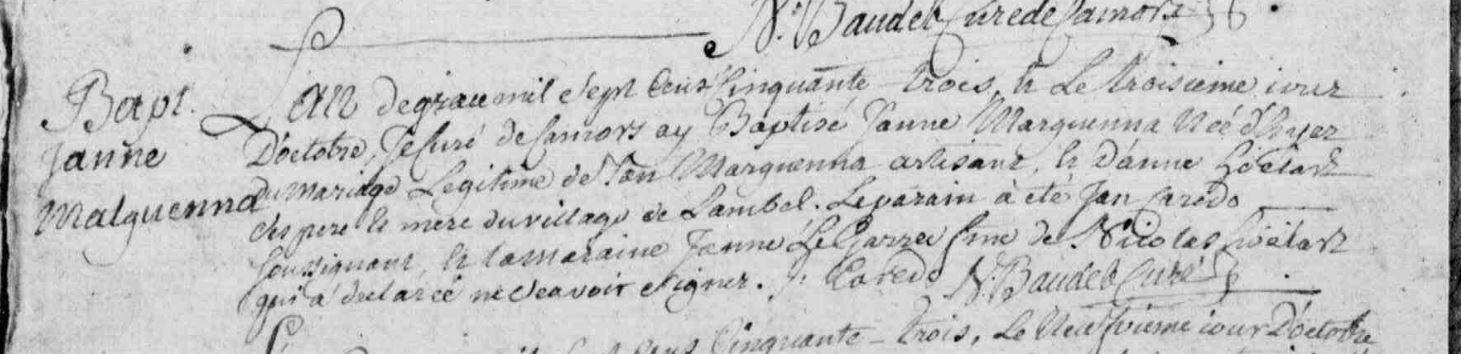 N. Baudet Curé de Camors
Bapt.
Janne
Malguenna
L'an de grace mil sept cens cinquante-trois, et Le troisieme iour
D'octobre, Je Curé de Camors ay Baptisé Janne Marguenna Née d'hyer
Du mariage Legitime de Jan Marguenna artisant, et d'anne
ses pere et mere du village de Lambel. Le parain à eté Jan Caredo
soussignant, et la maraine Janne Le Garrec fme de Nicolas
qui a declareé ne sçavoir signer. J: Caredo N. Baudet Curé
cens Cinquante-trois, Le Neufvieme iour D'octobre